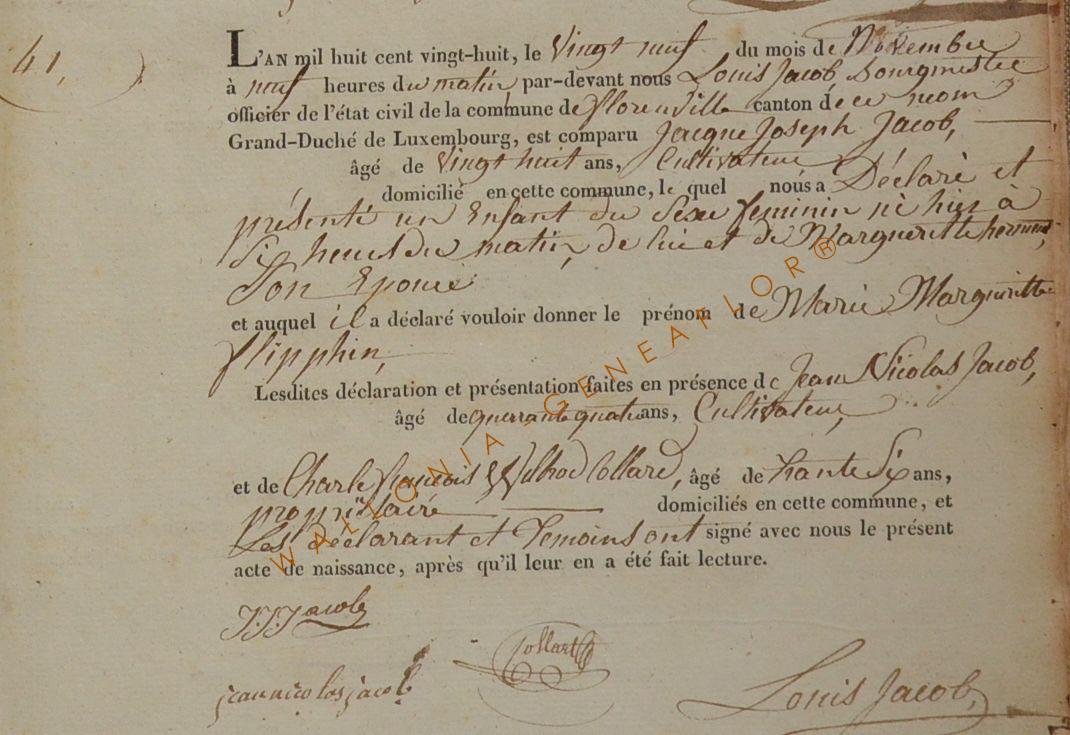 41,
L'AN mil huit cent vingt-huit, le Vingt neuf du mois de Novembre
à neuf heures du matin, par-devant nous Louis Jacob Bourgmestre
officier de l'état civil de la commune de florenville canton de ce nom
Grand-Duché de Luxembourg, est comparu Jacque Joseph Jacob,
âgé de Vingt huit ans, Cultivateur
domicilié en cette commune, le quel nous a Déclaré et
présenté un Enfant du Sexe feminin né hier à
Six heures du matin, de lui et de Margueritte
Son Epouse
et auquel il a déclaré vouloir donner le prénom de Marie Margueritte
Lesdites déclaration et présentation faites en présence de Jean Nicolas Jacob,
âgé de quarrante quatre ans, Cultivateur,
et de Charle francois Collard, âgé de trante Six ans,
propriëtaire domiciliés en cette commune, et
Les déclarant et Temoins ont signé avec nous le présent
acte de naissance, après qu'il leur en a été fait lecture.
J:J:Jacob
Collart
jean nicolas jacob
Louis Jacob
WALLONIA - GENEAFLOR®